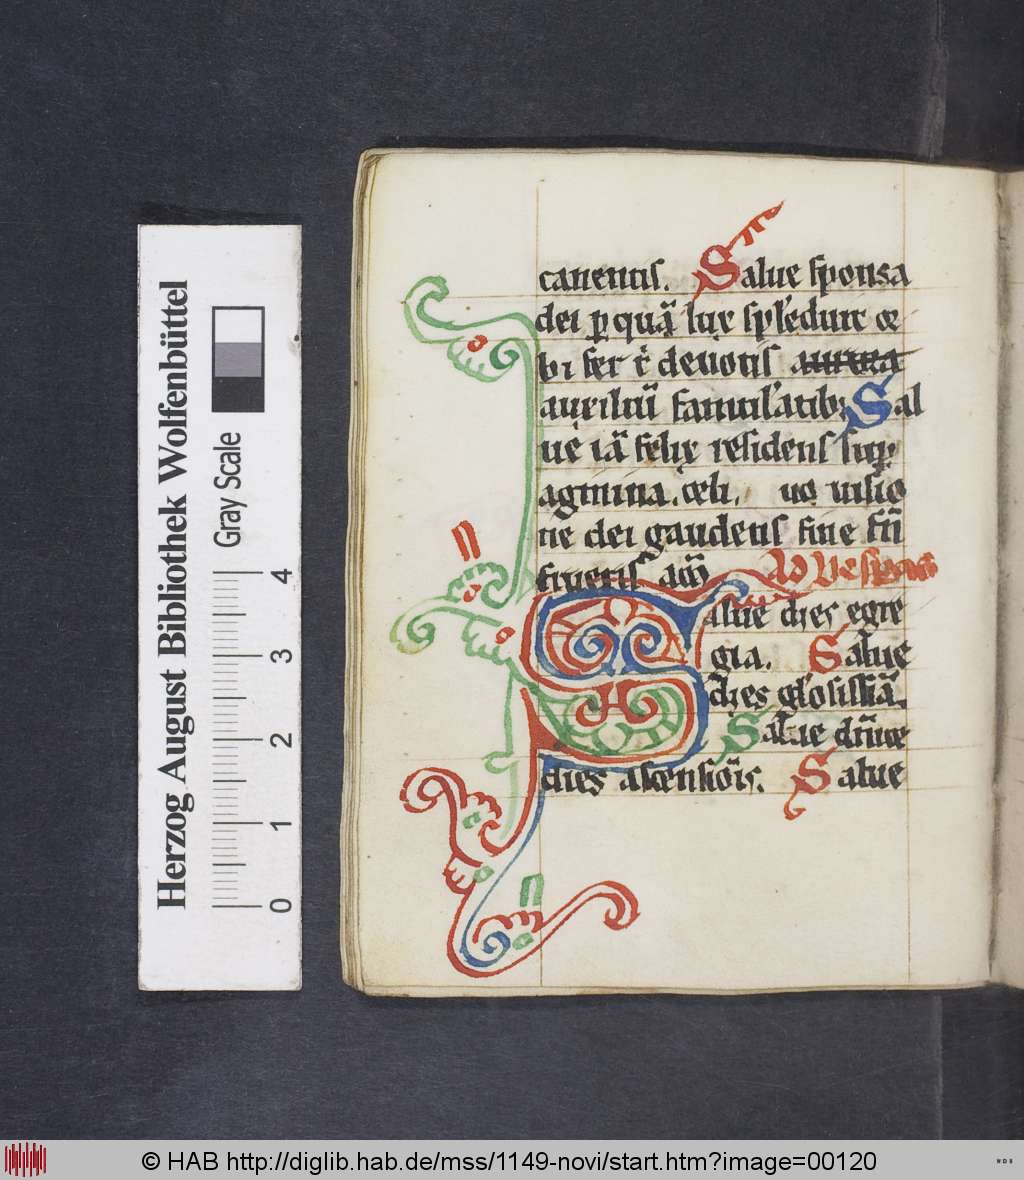 canentis. Salue sponsa
dei p quã lux splēduit or
bi fer et deuotis
auxiliũ famulatib; Sal
ue iã felix residens sup
agmina celi. uo uisio
ne dei gaudens sine fñ
frueris am̃ Ad vesperas
Salue dies egre
gia. Salue
dies glōsissiã.
Salue diuine
dies ascensiōis. Salue
Herzog August Bibliothek Wolfenbüttel
Gray Scale
0 1 2 3 4
© HAB http://diglib.hab.de/mss/1149-novi/start.htm?image=00120